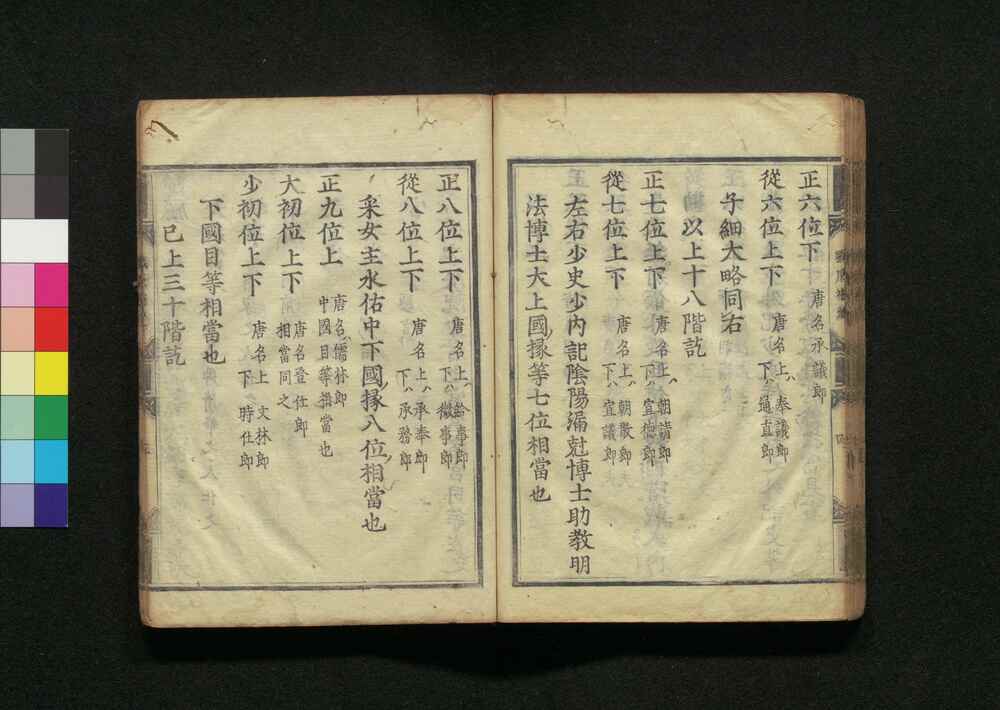 正六位下 唐名承議郎
從六位上下 唐名上ハ奉議郎
下ハ通直郎
子細大略同右
以上十八階訖
正七位上下 唐名上ハ朝請郎
下ハ宣德郎
從七位上下 唐名上ハ朝散郎
下ハ宣議郎
左右少史少内記陰陽漏尅博士助教明
法博士大上國掾等七位相當也
正八位上下 唐名上ハ給事郎
下ハ徴事郎
從八位上下 唐名上ハ承奉郎
下ハ承務郎
采女主水佑中下國掾八位相當也
正九位上 唐名儒林郎
中國目等相當也
大初位上下 唐名登仕郎
相當同之
少初位上下 唐名上文林郎
下時仕郎
下國目等相當也
已上三十階訖